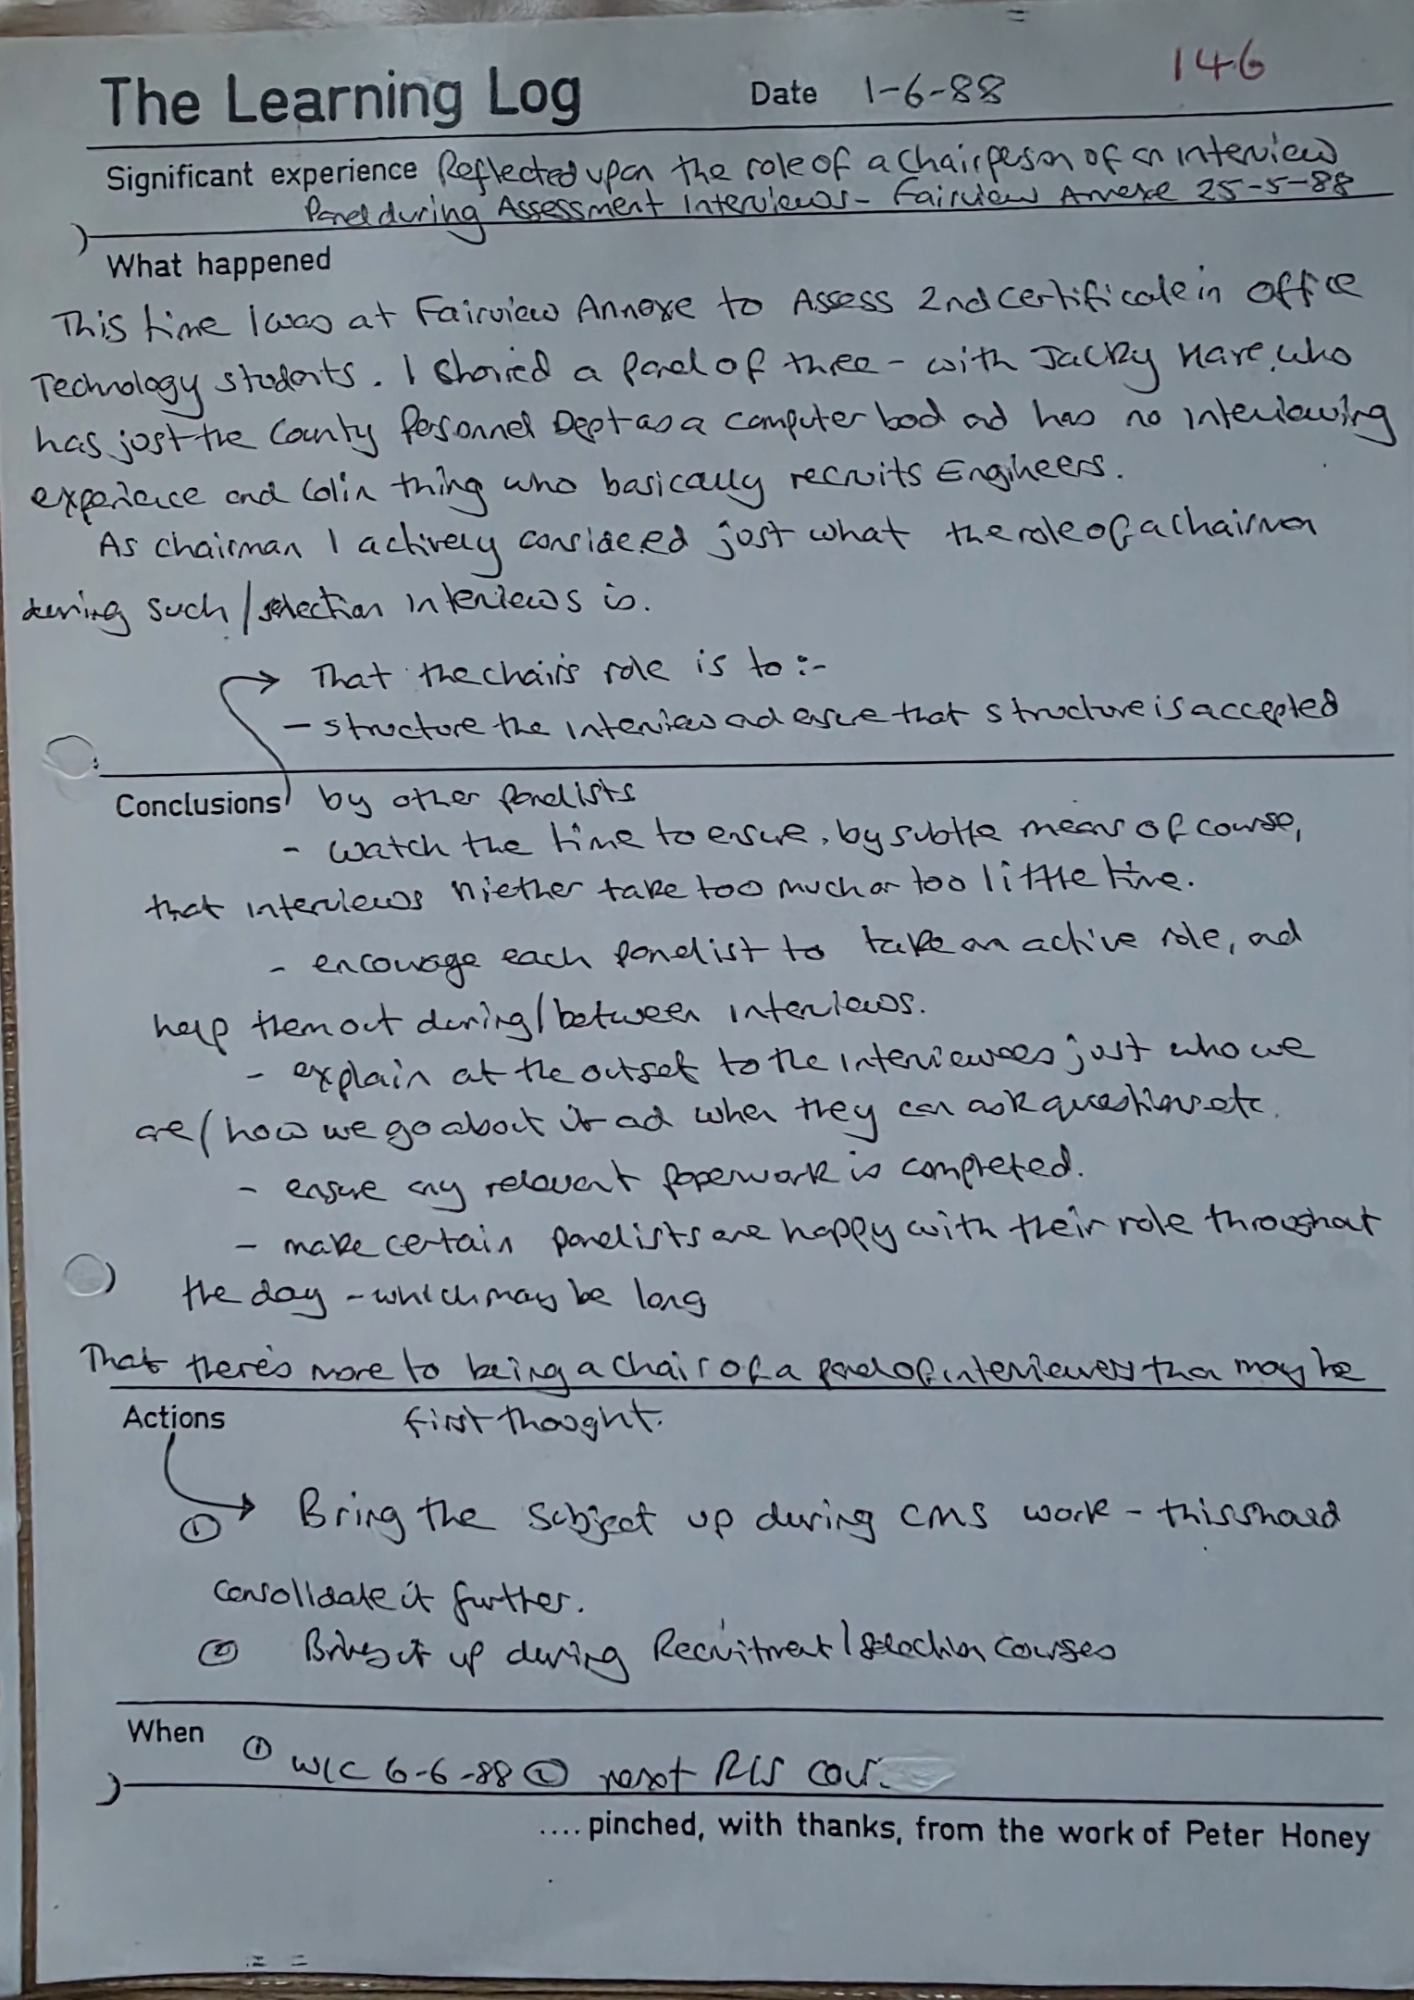 146
The Learning Log Date 1-6-88
Significant experience Reflected upon the role of a chairperson of an interview
Panel during Assessment Interviews - Fairview Annexe 25-5-88
What happened
This time I was at Fairview Annexe to Assess 2nd certificate in office
Technology students. I shared a panel of three - with Jacky Hare, who
has just the County Personnel Dept as a computer bod ad has no interviewing
experience and Colin thing who basically recruits Engineers.
As chairman I actively considered just what the role of a chairman
during such / selection interviews is.
That the chair's role is to :-
- structure the interview ad ensure that structure is accepted
Conclusions by other panelists
- watch the time to ensure, by subtle means of course,
that interviews niether take too much or too little time.
- encourage each panelist to take an active role, ad
help them out during / between interviews.
- explain at the outset to the interviewees just who we
are / how we go about it ad when they can ask questions etc.
- ensure any relevant paperwork is completed.
- make certain panelists are happy with their role throughout
the day - which may be long
That there's more to being a chair of a panel of interviewers than may be
Actions first thought.
① Bring the subject up during CMS work - this should
consolidate it further.
② Bring it up during Recruitment / Selection courses
When ① W/C 6-6-88 ② next R/S
.... pinched, with thanks, from the work of Peter Honey